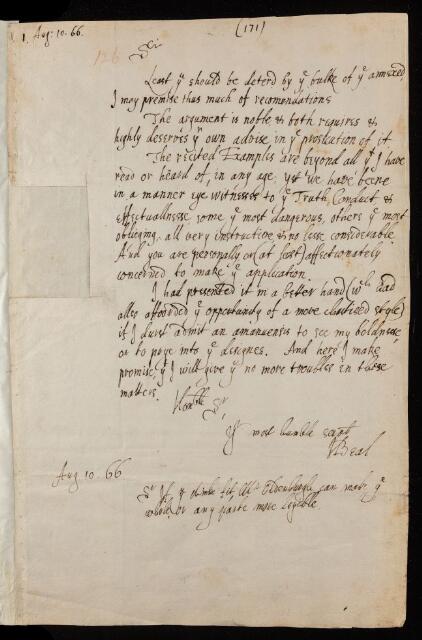 1. Aug: 10. 66.
(171)
126
Sir
Least yᵉ should be deterd by yᵉ bulke of yᵉ annexed
I may premise thus much of recomendations
The argument is noble & both requires &
highly deserves yʳ own advise in yᵉ probation of it
The recited Examples are beyond all yᵗ I have
read or heard of, in any age: yet we have beene
in a manner eye witnesses to yᵉ Truth, Conduct, &
effectuallnesse some yᵉ most dangerous, others yᵉ most
obliging, all very instructive & no lesse considerable
And you are personally or (at least) affectionately
concerned to make yᵉ application.
I had presented it in a better hand (wᶜʰ had
allso afforded yᵉ opportunity of a more chastised style)
if I durst admit an amanuensis to see my boldnesse
or to prye into yᵉ designes. And here I make
promise yᵗ I will give yᵘ no more troubles in these
matters.
Honᵇˡᵉ Sʳ,
Yʳ most humble servᵗ
Beal
Aug 10. 66
Sʳ If yᵘ thinke fit, Mʳ Oldenburgh can make yᵉ
whole, or any parte more legible.